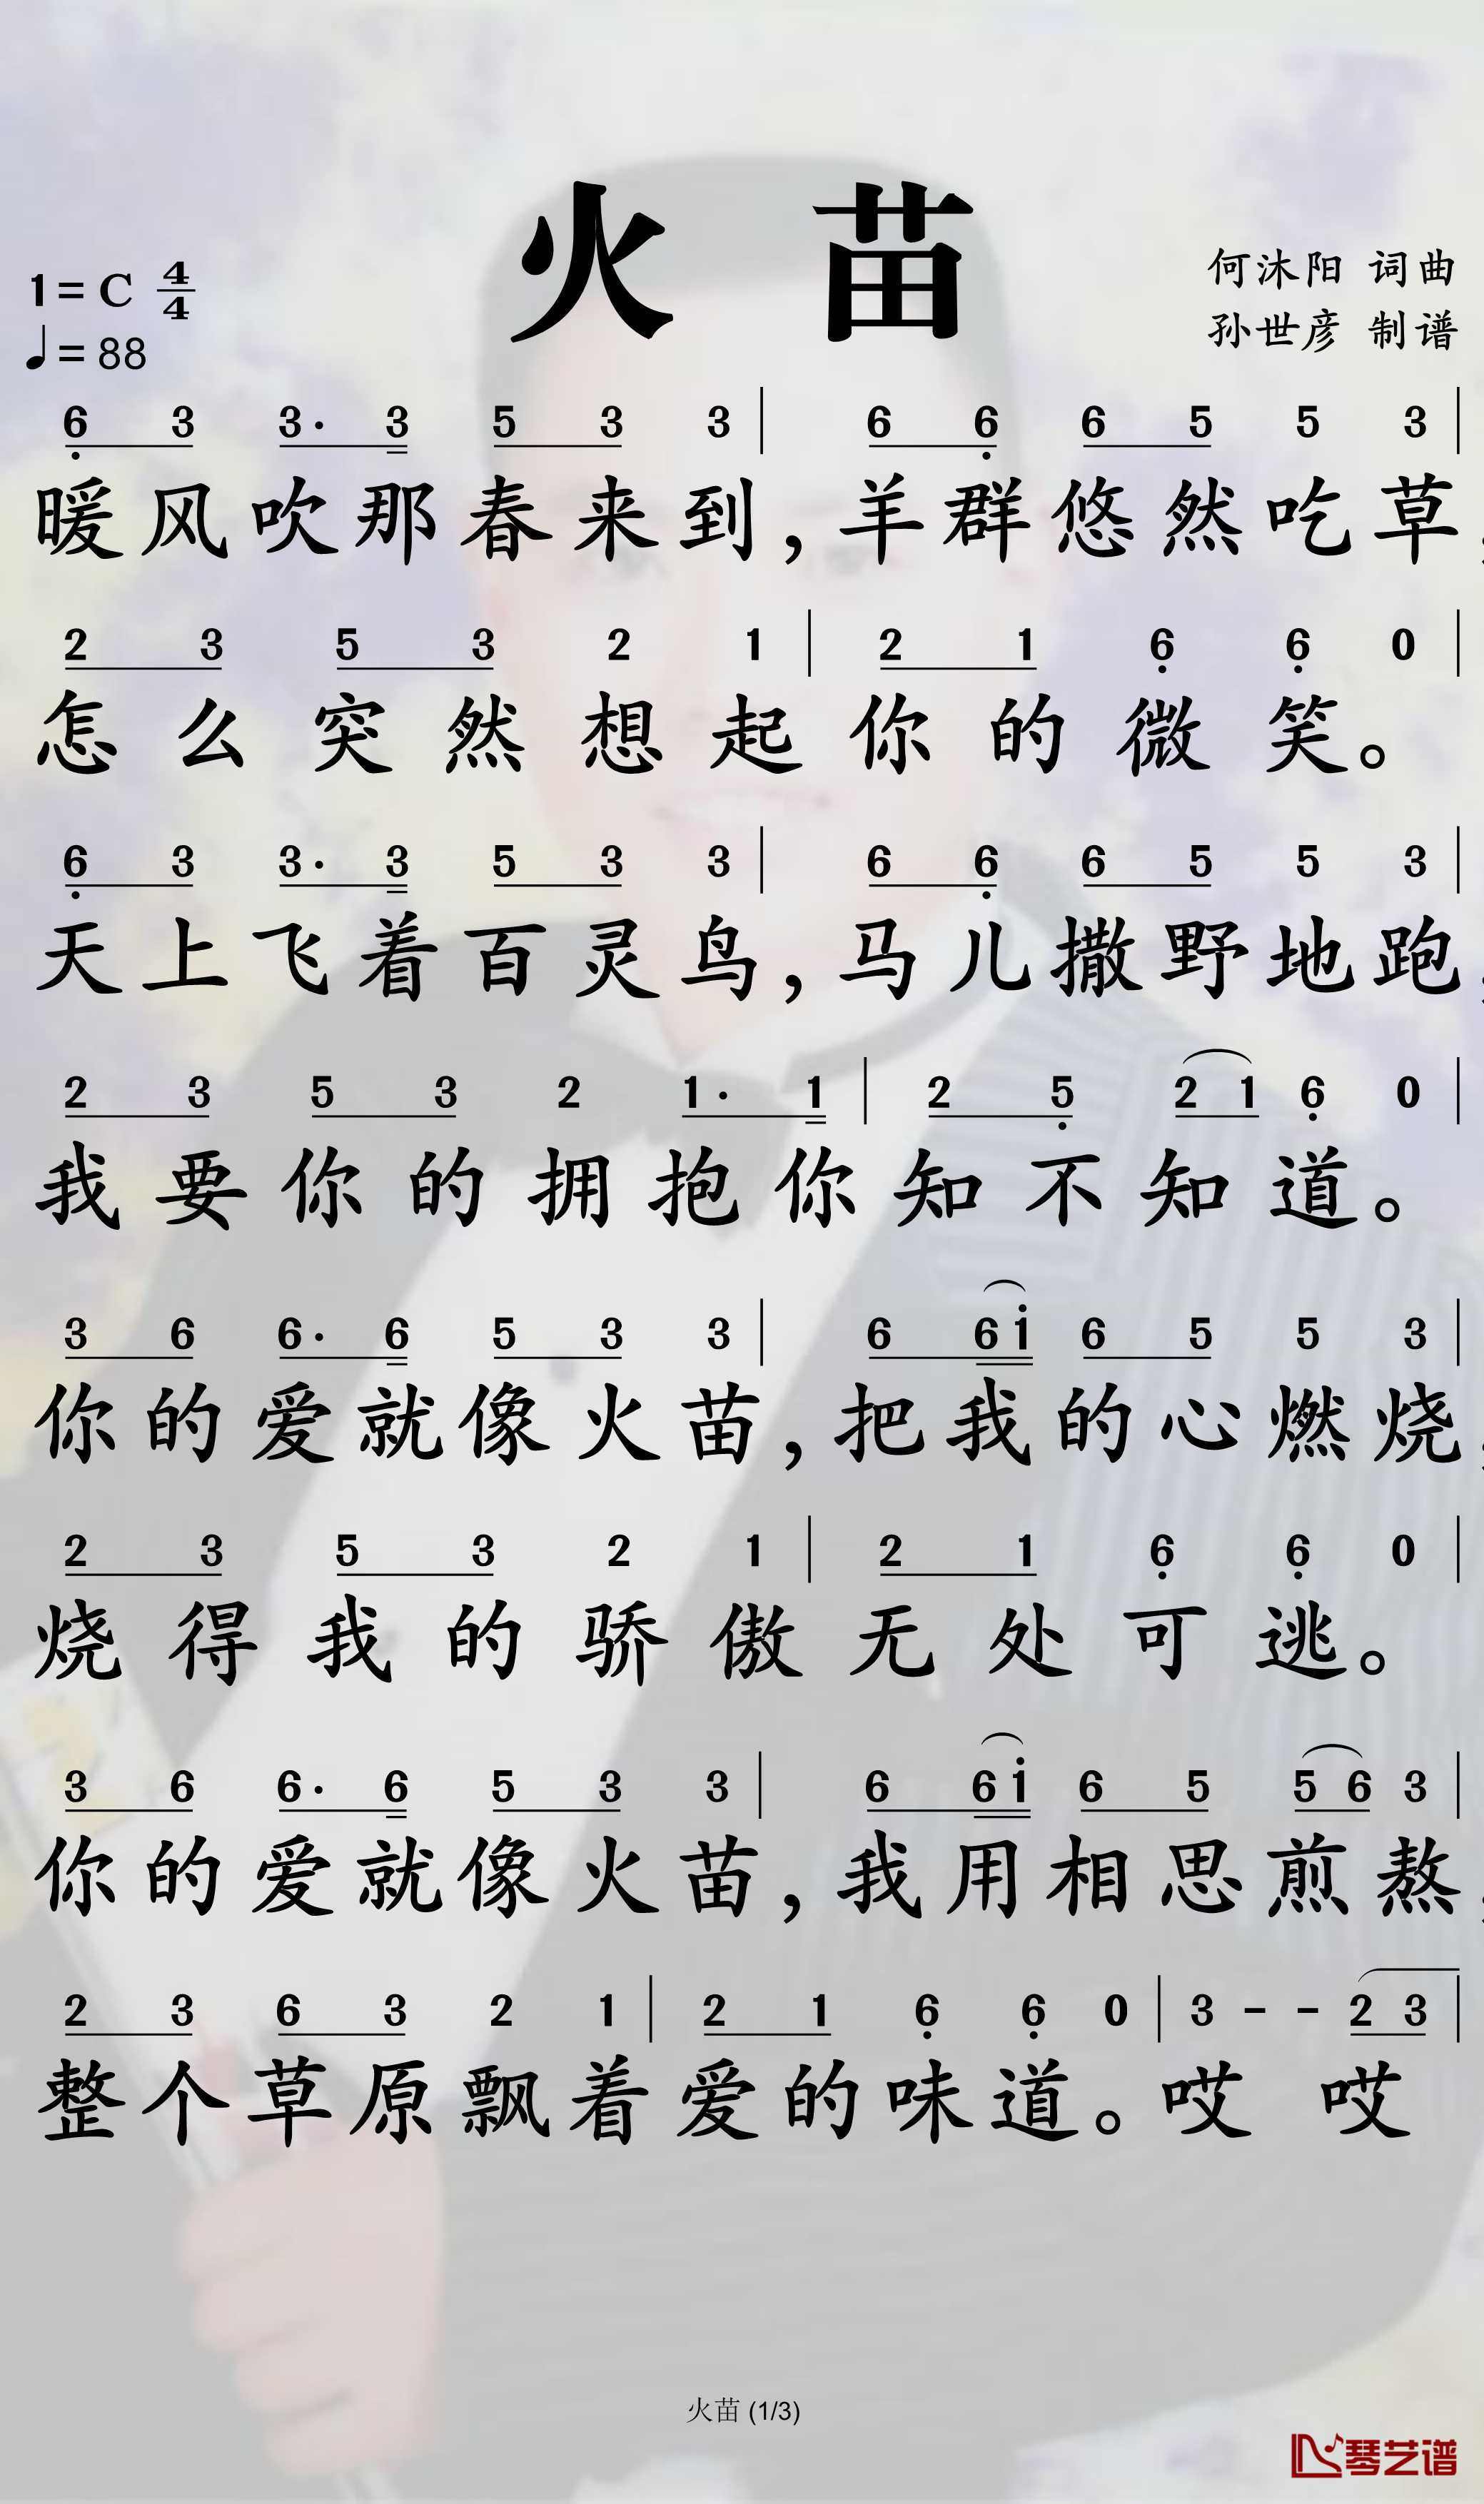 火 苗
1= C 4/4
♩= 88
何沐阳 词曲
孙世彦 制谱
6̣ 3 3· 3 5 3 3 | 6 6̣ 6 5 5 3 |
暖风吹那春来到，羊群悠然吃草，
2 3 5 3 2 1 | 2 1 6̣ 6̣ 0 |
怎么突然想起你的微笑。
6̣ 3 3· 3 5 3 3 | 6 6̣ 6 5 5 3 |
天上飞着百灵鸟，马儿撒野地跑，
2 3 5 3 2 1· 1 | 2 5̣ 2 1 6̣ 0 |
我要你的拥抱你知不知道。
3 6 6· 6 5 3 3 | 6 6 1̇ 6 5 5 3 |
你的爱就像火苗，把我的心燃烧，
2 3 5 3 2 1 | 2 1 6̣ 6̣ 0 |
烧得我的骄傲无处可逃。
3 6 6· 6 5 3 3 | 6 6 1̇ 6 5 5 6 3 |
你的爱就像火苗，我用相思煎熬，
2 3 6 3 2 1 | 2 1 6̣ 6̣ 0 | 3 - - 2 3 |
整个草原飘着爱的味道。哎 哎
火苗 (1/3)
琴艺谱